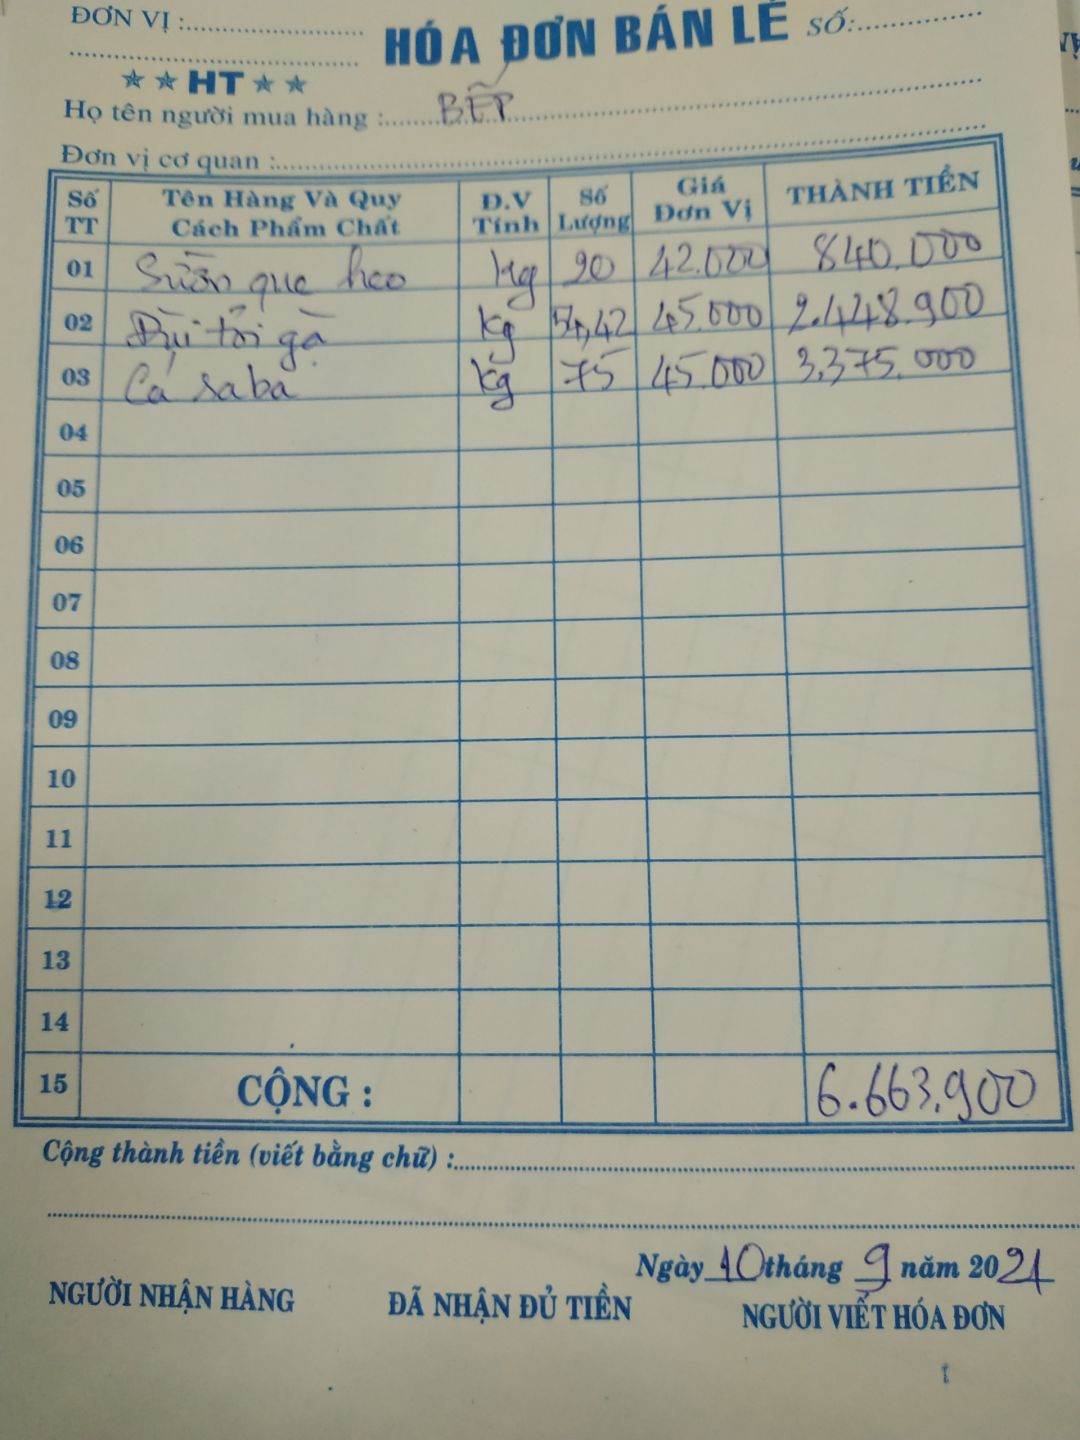 ĐƠN VỊ :
HÓA ĐƠN BÁN LẺ
SỐ:
HT
Họ tên người mua hàng : BẾP
Đơn vị cơ quan :
Số TT | Tên Hàng Và Quy Cách Phẩm Chất | Đ.V Tính | Số Lượng | Giá Đơn Vị | THÀNH TIỀN
01 Sườn que heo kg 20 42.000 840.000
02 Đùi tỏi gà kg 54,42 45.000 2.448.900
03 Cá saba kg 75 45.000 3.375.000
04
05
06
07
08
09
10
11
12
13
14
15 CỘNG : 6.663.900
Cộng thành tiền (viết bằng chữ) :
Ngày 10 tháng 9 năm 2021
NGƯỜI NHẬN HÀNG
ĐÃ NHẬN ĐỦ TIỀN
NGƯỜI VIẾT HÓA ĐƠN